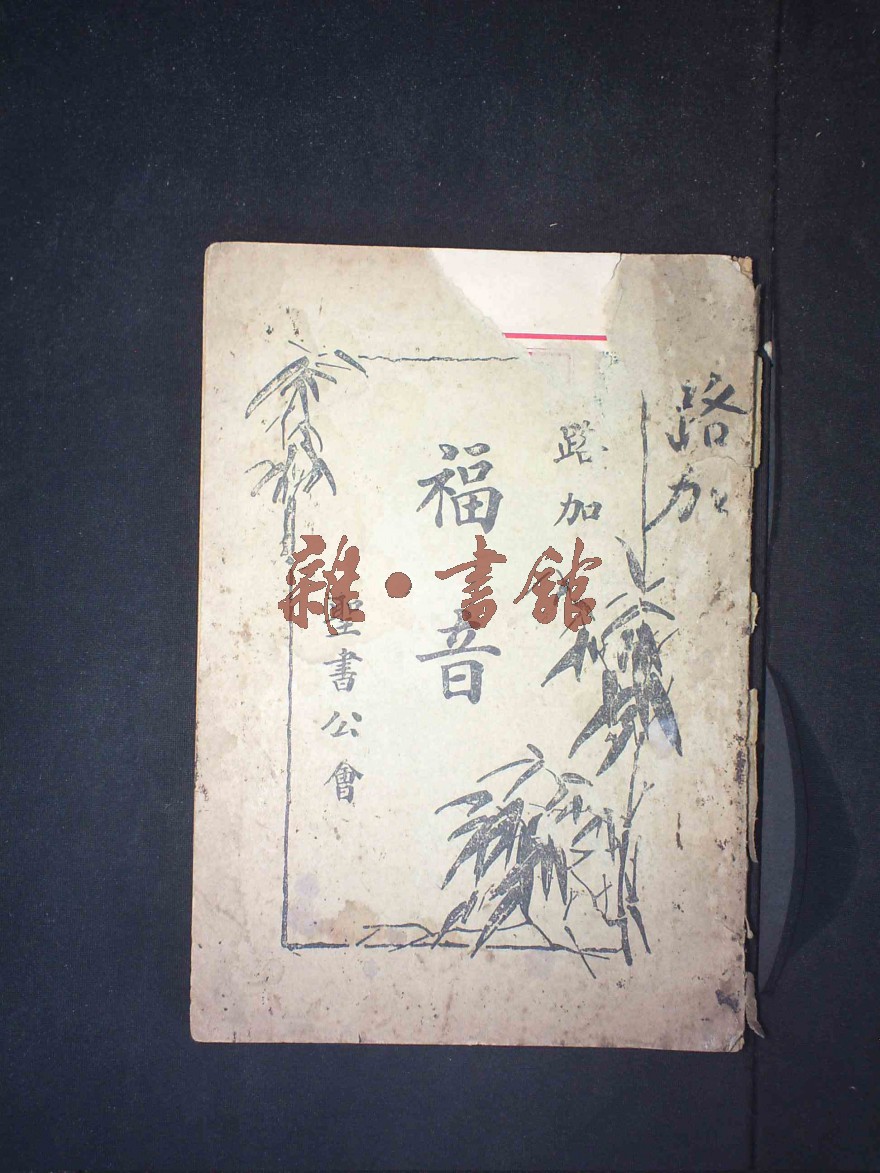 路加
路加
福音
聖書公會
雜·書館